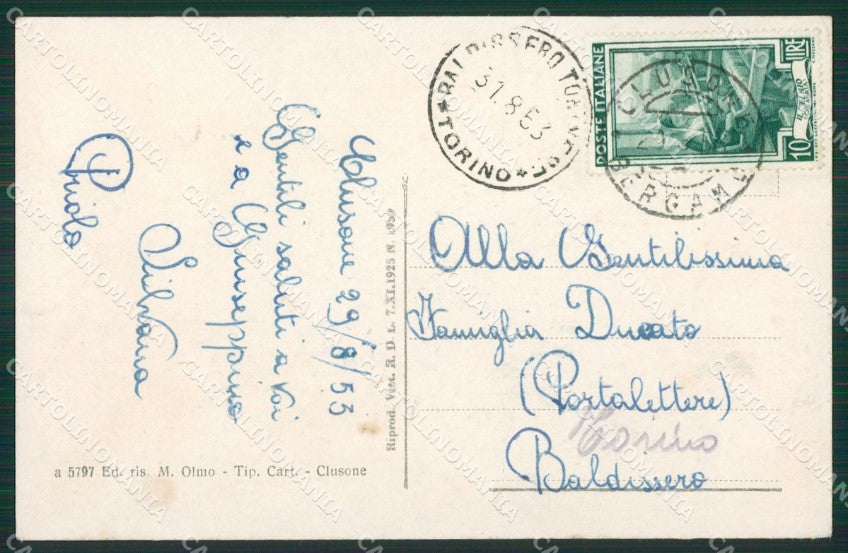 Clusone 29/8/53
Gentili saluti a voi
e a Giuseppino
Silvana
Paola
a 5797 Ed. ris. M. Olmo - Tip. Cart. - Clusone
Riprod. Viet. R. D. L. 7.XI.1925 N. 1950
BALDISSERO TORINESE
31.8.53
* TORINO *
POSTE ITALIANE
10 LIRE
CLUSONE
BERGAMO
Alla Gentilissima
Famiglia Ducato
(Portalettere)
Torino
Baldissero
CARTOLINOMANIA